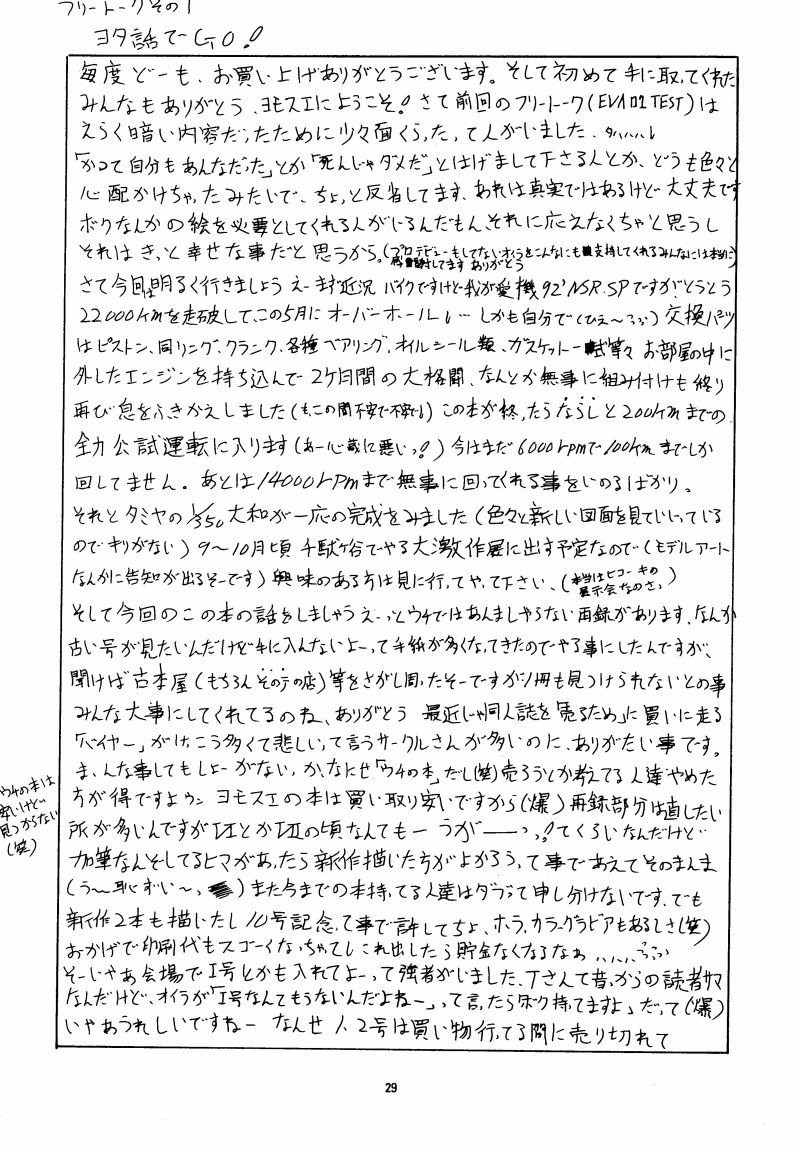 フリートークその1
ヨタ話でGO!
毎度どーも、お買い上げありがとうございます。そして初めて手に取ってくれた
みんなもありがとう、ヨモスエにようこそ!さて前回のフリートーク(EVA TEST)は
えらく暗い内容だったために少々面くらったって人がいました、タハハハ…
「かつて自分もあんなだった」とか「死んじゃダメだ」とはげまして下さる人とか、どうも色々と
心配かけちゃったみたいで、ちょっと反省してます、あれは真実ではあるけど大丈夫です
ボクなんかの絵を必要としてくれる人がいるんだもん、それに応えなくちゃと思うし
それはきっと幸せな事だと思うから。(プロデビューもしてないオイラをこんなにも支持してくれるみんなには本当に
感謝してます ありがとう
さて今回は明るく行きましょう えーまず近況 バイクですけど我が愛機92'NSR.SPですがとうとう
22000kmを走破して、この5月にオーバーホールし… しかも自分で(ひえ〜ふふ)交換パーツ
はピストン、同リング、クランク、各種ベアリング、オイルシール類、ガスケット一式等々 お部屋の中に
外したエンジンを持ち込んで2ケ月間の大格闘、なんとか無事に組み付けも終り
再び息をふきかえしました(もこの間不安で不安で)この本が終ったらならしと200kmまでの
全力公試運転に入ります(あー心蔵に悪いっ!)今はまだ6000rpmで100kmまでしか
回してません。あとは14000rpmまで無事に回ってくれる事をいのるばかり。
それとタミヤの1/350大和が一応の完成をみました(色々と新しい図面を見ていじっている
のでキリがない)9〜10月頃 千駄ケ谷でやる大激作展に出す予定なので(モデルアート
なんかに告知が出るそーです)興味のある方は見に行ってやって下さい、(本当はヒコーキの
展示会なのさっ)
そして今回のこの本の話をしましょう えーっとウチではあんましやらない再録があります、なんか
古い号が見たいんだけど手に入んないよーって手紙が多くなってきたのでやる事にしたんですが、
聞けば古本屋(もちろんその手の店)等をさがし周ったそーですが1冊も見つけられないとの事
みんな大事にしてくれてるのね、ありがとう 最近じゃ同人誌を「売るため」に買いに走る
「バイヤー」がけっこう多くて悲しいって言うサークルさんが多いのに、ありがたい事です。
ま、んな事してもしょーがない、か、なにせ「ウチの本」だし(笑)売ろうとか考えてる人達やめた
方が得ですよゥン ヨモスエの本は買い取り安いですから(爆)再録部分は直したい
所が多いんですがⅠとかⅡの頃なんてもーうがーーっ!てくらいなんだけど
加筆なんぞしてるヒマがあったら新作描いたちがよかろうって事であえてそのまんま
(う〜恥ずい〜)また今までの本持ってる人達はダブって申し分けないです、でも
新作2本も描いたし10号記念って事で許してちょ、ホラ、カラーグラビアもあるしさ(笑)
おかげで印刷代もスゴーくなっちゃてしこれ出したら貯金なくなるなぁ……ふふ
そーいやあ会場で1号とかも入れてよーって強者がいました、Tさんて昔っからの読者サマ
なんだけど、オイラが「1号なんてもうないんだよねー」って言ったら「ボク持てますよ」だって(爆)
いやあうれしいですねー なんせ1、2号は買い物行ってる間に売り切れて
ウチの本は
安いけど
見つからない
(笑)
29